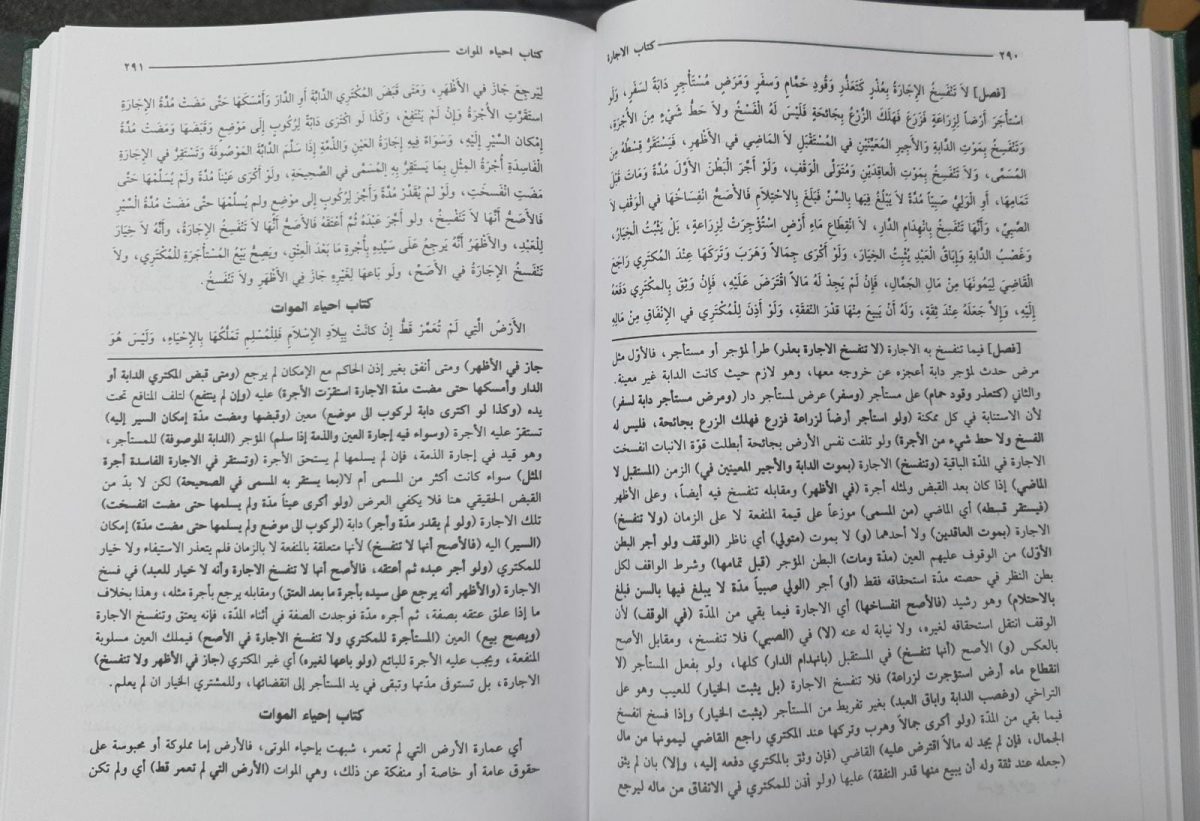 ٢٩٠ كتاب الاجارة
[فصل] لاَ تَنْفَسِخُ الإِجَارَةُ بِعُذْرٍ كَتَعَذُّرِ وَقُودِ حَمَّامٍ وَسَفَرٍ وَمَرَضِ مُسْتَأْجِرِ دَابَّةٍ لِسَفَرٍ، وَلَوِ
اسْتَأْجَرَ أَرْضاً لِزِرَاعَةٍ فَزَرَعَ فَهَلَكَ الزَّرْعُ بِجَائِحَةٍ فَلَيْسَ لَهُ الْفَسْخُ وَلاَ حَطُّ شَيْءٍ مِنَ الأُجْرَةِ،
وَتَنْفَسِخُ بِمَوْتِ الدَّابَّةِ وَالأَجِيرِ المُعَيَّنَيْنِ في المُسْتَقْبَلِ لاَ المَاضِي في الأَظْهَرِ، فَيَسْتَقِرُّ قِسْطُهُ مِنَ
المُسَمَّى، وَلاَ تَنْفَسِخُ بِمَوْتِ العَاقِدَيْنِ وَمُتَوَلِّي الْوَقْفِ، وَلَوْ أَجَرَ البَطْنُ الأَوَّلُ مُدَّةً وَمَاتَ قَبْلَ
تَمَامِهَا، أَوِ الْوَلِيُّ صَبِيّاً مُدَّةً لاَ يَبْلُغُ فِيهَا بِالسِّنِّ فَبَلَغَ بِالاحْتِلاَمِ فَالأَصَحُّ انْفِسَاخُهَا في الْوَقْفِ لاَ
الصَّبِيِّ، وَأَنَّهَا تَنْفَسِخُ بِانْهِدَامِ الدَّارِ، لاَ انْقِطَاعِ مَاءِ أَرْضٍ اسْتُؤْجِرَتْ لِزِرَاعَةٍ، بَلْ يَثْبُتُ الْخِيَارُ،
وَغَصْبُ الدَّابَّةِ وَإِبَاقُ الْعَبْدِ يُثْبِتُ الخِيَارَ، وَلَوْ أَكْرَى جِمَالاً وَهَرَبَ وَتَرَكَهَا عِنْدَ المُكْتَرِي رَاجَعَ
الْقَاضِيَ لِيَمُونَهَا مِنْ مَالِ الجَمَّالِ، فَإِنْ لَمْ يَجِدْ لَهُ مَالاً اقْتَرَضَ عَلَيْهِ، فَإِنْ وَثِقَ بِالمكْتَرِي دَفَعَهُ
إِلَيْهِ، وَإِلاَّ جَعَلَهُ عِنْدَ ثِقَةٍ، وَلَهُ أَنْ يَبِيعَ مِنْهَا قَدْرَ النَّفَقَةِ، وَلَوْ أَذِنَ لِلْمُكْتَرِي في الإِنْفَاقِ مِنْ مَالِهِ
[فصل] فيما تنفسخ به الاجارة (لا تنفسخ الاجارة بعذر) طرأ لمؤجر أو مستأجر، فالأوّل مثل
مرض حدث لمؤجر دابة أعجزه عن خروجه معها، وهو لازم حيث كانت الدابة غير معينة.
والثاني (كتعذر وقود حمام) على مستأجر (وسفر) عرض لمستأجر دار (ومرض مستأجر دابة لسفر)
لأن الاستنابة في كل ممكنة (ولو استأجر أرضاً لزراعة فزرع فهلك الزرع بجائحة، فليس له
الفسخ ولا حط شيء من الأجرة) ولو تلفت نفس الأرض بجائحة أبطلت قوّة الانبات انفسخت
الاجارة في المدّة الباقية (وتنفسخ) الاجارة (بموت الدابة والأجير المعينين في) الزمن (المستقبل لا
الماضي) إذا كان بعد القبض ولمثله أجرة (في الأظهر) ومقابله تنفسخ فيه أيضاً، وعلى الأظهر
(فيستقر قسطه) أي الماضي (من المسمى) موزعاً على قيمة المنفعة لا على الزمان (ولا تنفسخ)
الاجارة (بموت العاقدين) ولا أحدهما (و) لا بموت (متولي) أي ناظر (الوقف ولو أجر البطن
الأوّل) من الوقوف عليهم العين (مدّة ومات) البطن المؤجر (قبل تمامها) وشرط الواقف لكل
بطن النظر في حصته مدّة استحقاقه فقط (أو) أجر (الولي صبياً مدّة لا يبلغ فيها بالسن فبلغ
بالاحتلام) وهو رشيد (فالأصح انفساخها) أي الاجارة فيما بقي من المدّة (في الوقف) لأن
الوقف انتقل استحقاقه لغيره، ولا نيابة له عنه (لا) في (الصبي) فلا تنفسخ، ومقابل الأصح
بالعكس (و) الأصح (أنها تنفسخ) في المستقبل (بانهدام الدار) كلها، ولو بفعل المستأجر (لا
انقطاع ماء أرض استؤجرت لزراعة) فلا تنفسخ الاجارة (بل يثبت الخيار) للعيب وهو على
التراخي (وغصب الدابة واباق العبد) بغير تفريط من المستأجر (يثبت الخيار) وإذا فسخ انفسخ
فيما بقي من المدّة (ولو أكرى جمالاً وهرب وتركها عند المكتري راجع القاضي ليمونها من مال
الجمال، فإن لم يجد له مالاً اقترض عليه) القاضي (فإن وثق بالمكتري دفعه إليه، وإلا) بان لم يثق
(جعله عند ثقة وله أن يبيع منها قدر النفقة) عليها (ولو أذن للمكتري في الانفاق من ماله ليرجع
كتاب احياء الموات ٢٩١
لِيَرْجِعَ جَازَ في الأَظْهَرِ، وَمَتَى قَبَضَ المُكْتَرِي الدَّابَّةَ أَوِ الدَّارَ وَأَمْسَكَهَا حَتَّى مَضَتْ مُدَّةُ الإِجَارَةِ
اسْتَقَرَّتِ الأُجْرَةُ وَإِنْ لَمْ يَنْتَفِعْ، وَكَذَا لَوِ اكْتَرَى دَابَّةً لِرُكُوبٍ إِلَى مَوْضِعٍ وَقَبَضَهَا وَمَضَتْ مُدَّةُ
إِمْكَانِ السَّيْرِ إِلَيْهِ، وَسَوَاءٌ فِيهِ إِجَارَةُ العَيْنِ وَالذِّمَّةِ إِذَا سَلَّمَ الدَّابَّةَ المَوْصُوفَةَ وَتَسْتَقِرُّ في الإِجَارَةِ
الْفَاسِدَةِ أُجْرَةُ المِثْلِ بِمَا يَسْتَقِرُّ بِهِ المُسَمَّى في الصَّحِيحَةِ، وَلَوْ أَكْرَى عَيْناً مُدَّةً وَلَمْ يُسَلِّمْهَا حَتَّى
مَضَتِ انْفَسَخَتْ، وَلَوْ لَمْ يُقَدِّرْ مُدَّةً وَأَجَرَ لِرُكُوبٍ إِلى مَوْضِعٍ ولم يُسَلِّمْهَا حَتَّى مَضَتْ مُدَّةُ السَّيْرِ
فَالأَصَحُّ أَنَّهَا لاَ تَنْفَسِخُ، ولو أَجَرَ عَبْدَهُ ثُمَّ أَعْتَقَهُ فَالأَصَحُّ أَنَّهَا لاَ تَنْفَسِخُ الإِجَارَةُ، وَأَنَّهُ لاَ خِيَارَ
لِلْعَبْدِ، وَالأَظْهَرُ أَنَّهُ يَرْجِعُ عَلَى سَيِّدِهِ بِأُجْرَةِ مَا بَعْدَ العِتْقِ، ويَصِحُّ بَيْعُ المُسْتَأْجَرَةِ لِلْمُكْتَرِي، ولاَ
تَنْفَسِخُ الإِجَارَةُ في الأَصَحِّ، ولَو بَاعَهَا لِغَيْرِهِ جَازَ فِي الأَظْهَرِ ولاَ تَنْفَسِخُ.
كتاب احياء الموات
الأَرْضُ الَّتِي لَمْ تُعْمَرْ قَطُّ إِنْ كَانَتْ بِبِلاَدِ الإِسْلاَمِ فَلِلْمُسْلِمِ تَمَلُّكُهَا بِالإِحْيَاءِ، وَلَيْسَ هُوَ
جاز في الأظهر) ومتى أنفق بغير إذن الحاكم مع الإمكان لم يرجع (ومتى قبض المكتري الدابة أو
الدار وأمسكها حتى مضت مدّة الاجارة استقرّت الأجرة) عليه (وإن لم ينتفع) لتلف المنافع تحت
يده (وكذا لو اكترى دابة لركوب الى موضع) معين (وقبضها ومضت مدّة إمكان السير إليه)
تستقرّ عليه الأجرة (وسواء فيه إجارة العين والذمة إذا سلم) المؤجر (الدابة الموصوفة) للمستأجر،
وهو قيد في إجارة الذمة، فإن لم يسلمها لم يستحق الأجرة (وتستقر في الاجارة الفاسدة أجرة
المثل) سواء كانت أكثر من المسمى أم لا(بما يستقر به المسمى في الصحيحة) لكن لا بدّ من
القبض الحقيقي هنا فلا يكفي العرض (ولو أكرى عيناً مدّة ولم يسلمها حتى مضت انفسخت)
تلك الاجارة (ولو لم يقدر مدّة وأجر) دابة (لركوب الى موضع ولم يسلمها حتى مضت مدّة) إمكان
(السير) اليه (فالأصح أنها لا تنفسخ) لأنها متعلقة بالمنفعة لا بالزمان فلم يتعذر الاستيفاء ولا خيار
للمكتري (ولو أجر عبده ثم أعتقه، فالأصح أنها لا تنفسخ الاجارة وأنه لا خيار للعبد) في فسخ
الاجارة (والأظهر أنه يرجع على سيده بأجرة ما بعد العتق) ومقابله يرجع بأجرة مثله، وهذا بخلاف
ما إذا علق عتقه بصفة، ثم أجره مدّة فوجدت الصفة في أثناء المدّة، فإنه يعتق وتنفسخ الاجارة
(ويصح بيع) العين (المستأجرة للمكتري ولا تنفسخ الاجارة في الأصح) فيملك العين مسلوبة
المنفعة، ويجب عليه الأجرة للبائع (ولو باعها لغيره) أي غير المكتري (جاز في الأظهر ولا تنفسخ)
الاجارة، بل تستوفى مدّتها وتبقى في يد المستأجر إلى انقضائها، وللمشتري الخيار ان لم يعلم.
كتاب إحياء الموات
أي عمارة الأرض التي لم تعمر، شبهت بإحياء الموتى، فالأرض إما مملوكة أو محبوسة على
حقوق عامة أو خاصة أو منفكة عن ذلك، وهي الموات (الأرض التي لم تعمر قط) أي ولم تكن